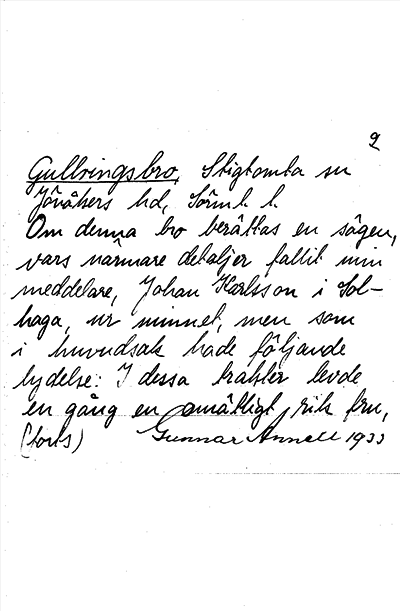 2
Gullringsbro, Stigtomta sn
Jönåkers hd, Sörml. l.
Om denna bro berättas en sägen,
vars närmare detaljer fallit min
meddelare, Johan Karlsson i Sol-
haga, ur minnet, men som
i huvudsak hade följande
lydelse: I dessa trakter levde
en gång en omåttligt rik fru,
(forts) Gunnar Annell 1933